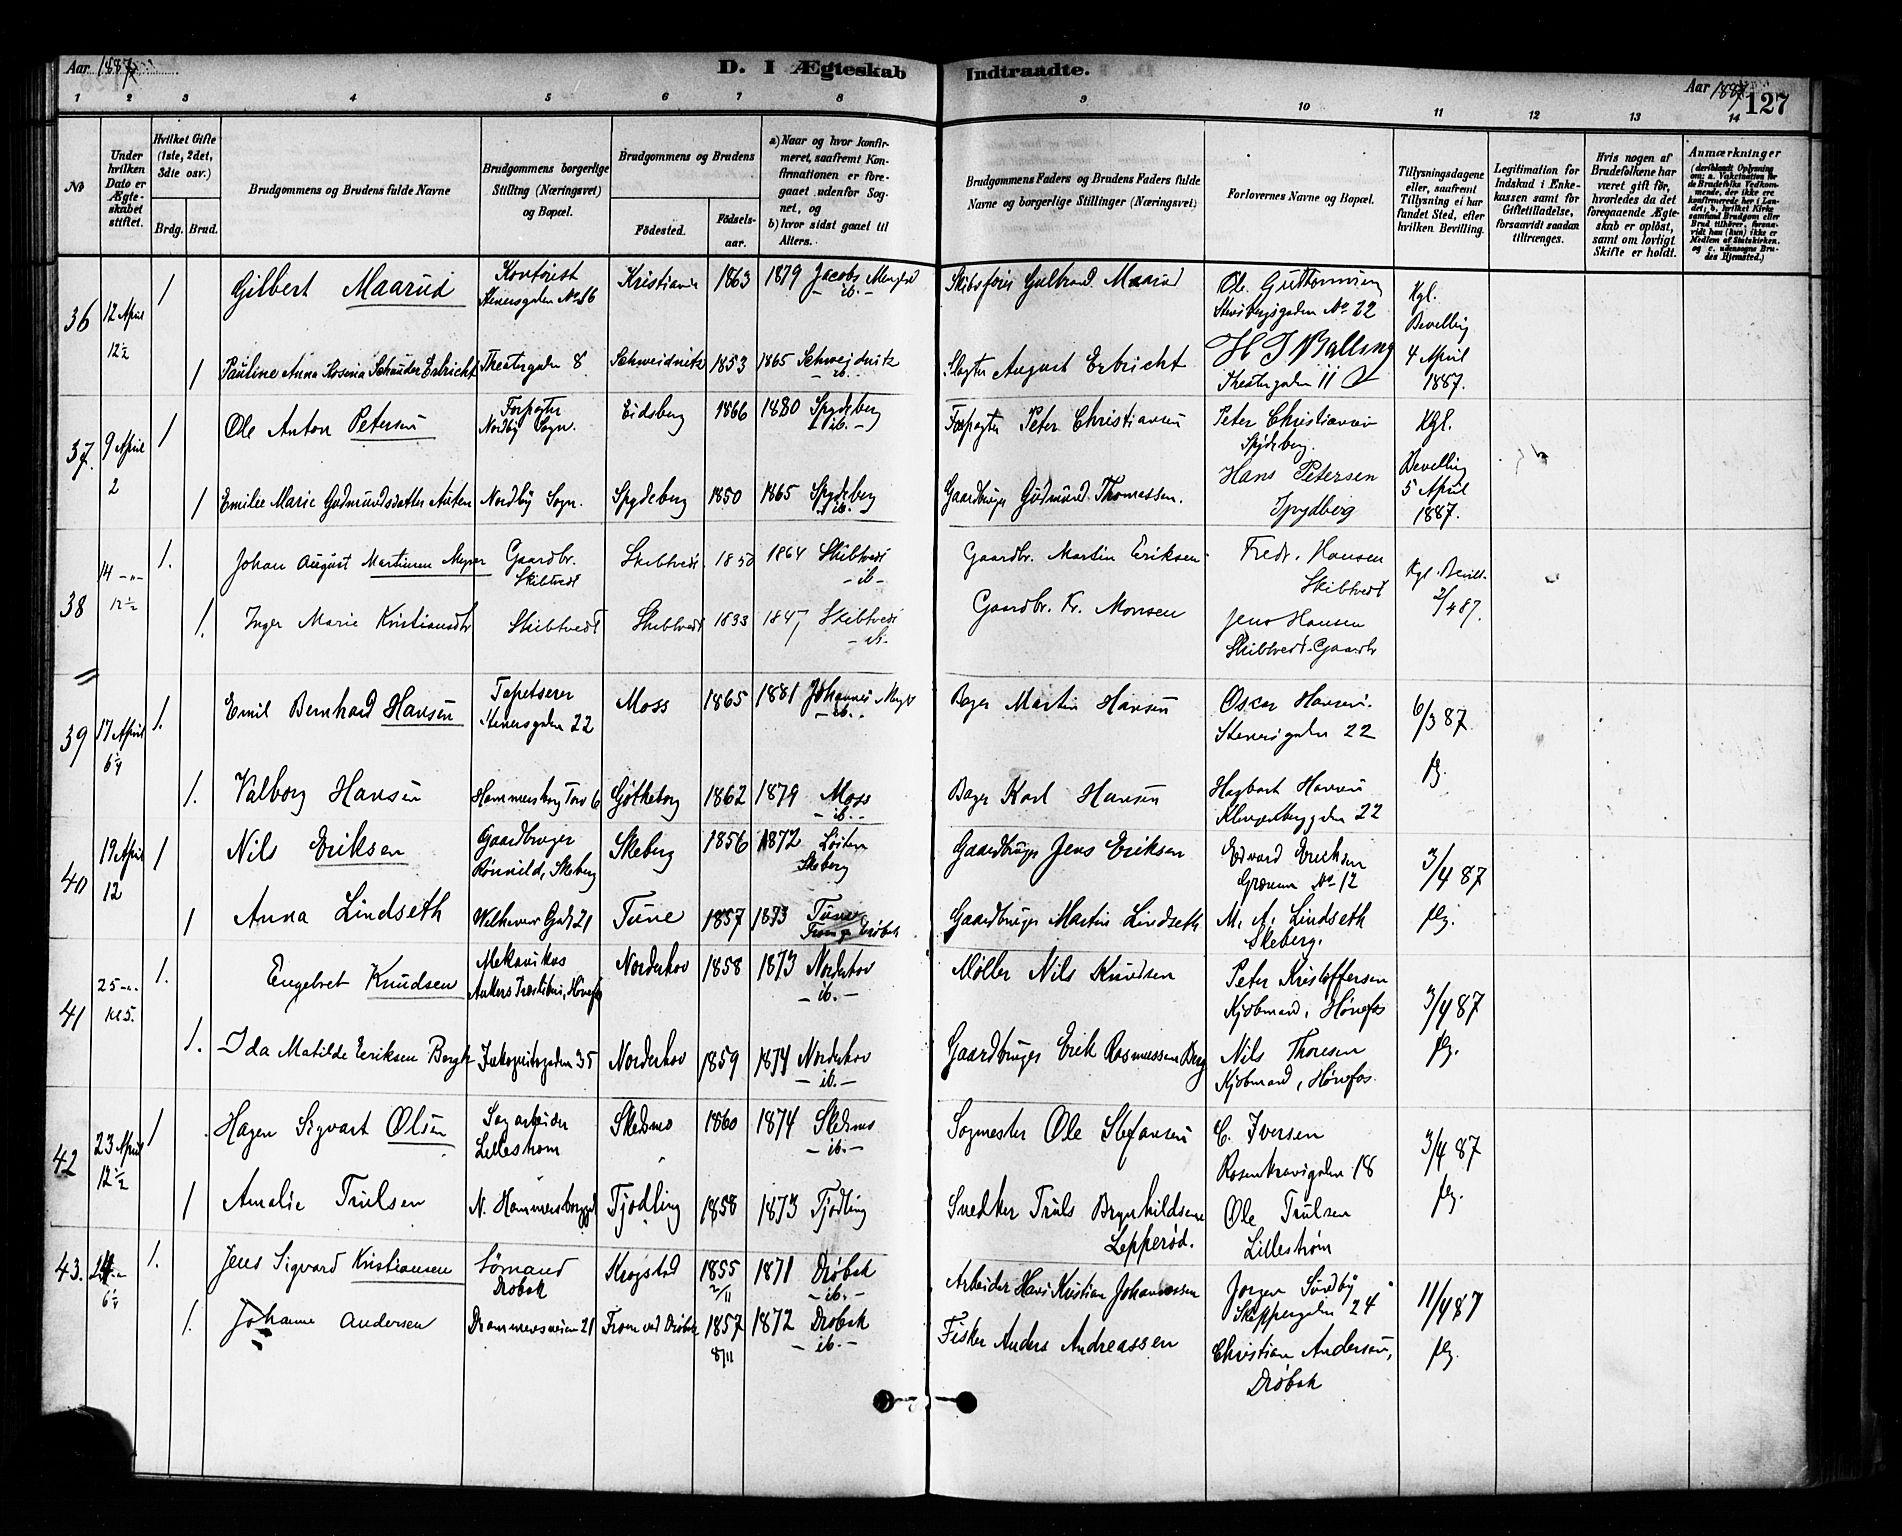 Aar 1887
D. I Ægteskab Indtraadte.
Aar 1887
127
1 2 3 4 5 6 7 8 9 10 11 12 13 14
No
Under hvilken Dato er Ægteskabet stiftet.
Hvilket Gifte (1ste, 2det, 3die osv.)
Brdg. Brud.
Brudgommens og Brudens fulde Navne
Brudgommens borgerlige Stilling (Næringsvei) og Bopæl.
Brudgommens og Brudens
Födested.
Födsels-aar.
a) Naar og hvor konfirmeret, saafremt Konfirmationen er foregaaet udenfor Sognet, og
b) hvor sidst gaaet til Alters.
Brudgommens Faders og Brudens Faders fulde Navne og borgerlige Stillinger (Næringsvei)
Forlovernes Navne og Bopæl.
Tillysningsdagene eller, saafremt Tillysning ei har fundet Sted, efter hvilken Bevilling.
Legitimation for Indskud i Enkekassen samt for Giftetilladelse, forsaavidt saadan tiltrænges.
Hvis nogen af Brudefolkene har været gift för, hvorledes da det foregaaende Ægteskab er oplöst, samt om lovligt Skifte er holdt.
Anmærkninger
36 12 April 12½ 1 Gilbert Maarud Kontorist Stenersgaden No 16 Kristiania 1863 1879 Jacobs Menighed - ib. - Skibsfører Gulbrand Maarud Ole Guttormsen Stensbergsgaden No 22 Kgl. Bevilling 4 April 1887.
1 Pauline Anna Rosina Schnüder Erbricht Theatergaden 8. Schweidnitz 1853 1865 Schweidnitz - ib. - Slagter August Erbricht H J Balling Theatergaden 11
37. 9 April 2 1 Ole Anton Petersen Forpagter Nordby Sogn. Eidsberg 1866 1880 Spydeberg - ib. - Forpagter Peter Christiansen Peter Christiansen Spydeberg. Kgl. Bevilling 5 April 1887.
1 Emilie Marie Gudmundsdatter Auten Nordby Sogn. Spydeberg 1850 1865 Spydeberg - ib. - Gaardbruger Gudmund Thomassen. Hans Petersen Spydberg
38 14 -"- 12½ 1. Johan August Martinsen Gaardbr. Skibtvedt Skibtvedt 1850 1864 Skibtvedt - ib - Gaardbr. Martin Eriksen Fredr. Hansen Skibtvedt Kgl. Bevill. 2/4 87.
1. Inger Marie Kristiansdtr Skibtvedt Skibtvedt 1833 1847 Skibtvedt - ib. - Gaardbr. Kr. Monsen Jens Hansen Skibtvedt. Gaardbr
39 17 April 6¼ 1. Emil Bernhard Hansen Tapetserer Stenersgaden 22 Moss 1865 1881 Johannes Mengh - ib. - Bager Martin Hansen Oscar Hansen. Stenersgaden 22 6/3 87.
1. Valborg Hansen Hammersborg Torv 6 Gjøtheborg 1862 1879 Moss - ib. - Bager Karl Hansen Hagbart Hansen 22 flg.
40 19 April 12 1 Nils Eriksen Gaardbruger Rønnild, Skeberg Skeberg 1856 1872 Løiten Skeberg Gaardbruger Jens Eriksen Edvard Ericksen Grænsen No 12 3/4 87
1 Anna Lindseth Welhavens Gade 21 Tune 1857 1873 Tune Drøbak Gaardbruger Martin Lindseth M. A. Lindseth Skeberg. flg.
41 25 -"- Kl 5. 1. Engebret Knudsen Mekanikus Ankers Træsliberi, Hønefos Norderhov 1858 1873 Norderhov - ib. - Møller Nils Knudsen Peter Kristoffersen Kjøbmand, Hønefos 3/4 87
1. Ida Matilde Eriksen Bergh 35 Norderhov 1859 1874 Norderhov - ib. - Gaardbruger Erik Rasmussen Berg Nils Thoresen Kjøbmand, Hønefos. flg.
42 23 April 12½ 1 Hagen Sigvart Olsen Sagarbeider Lillestrøm Skedsmo 1860 1874 Skedsmo - ib. - Sagmester Ole Stefansen C. Iversen Rosenkransgaden 18 3/4 87
1 Amalie Trulsen N. Hammersborggd Tjødling 1858 1873 Tjødling Snedker Truls Brynhildsen Lepperød. Ole Trulsen Lillestrøm flg.
43. 24 -"- 6¼ 1. Jens Sigvard Kristiansen Sømand Drøbak Krogstad 1855 2/11 1871 Drøbak - ib. - Arbeider Hans Kristian Johannessen Jørgen Sundby Skippergaden 24 11/4 87
1. Johanne Andersen Drammensveien 21 Fron ved Drøbak 1857 8/11 1872 Drøbak - ib. - Fisker Anders Andreassen Christian Andersen, Drøbak flg.